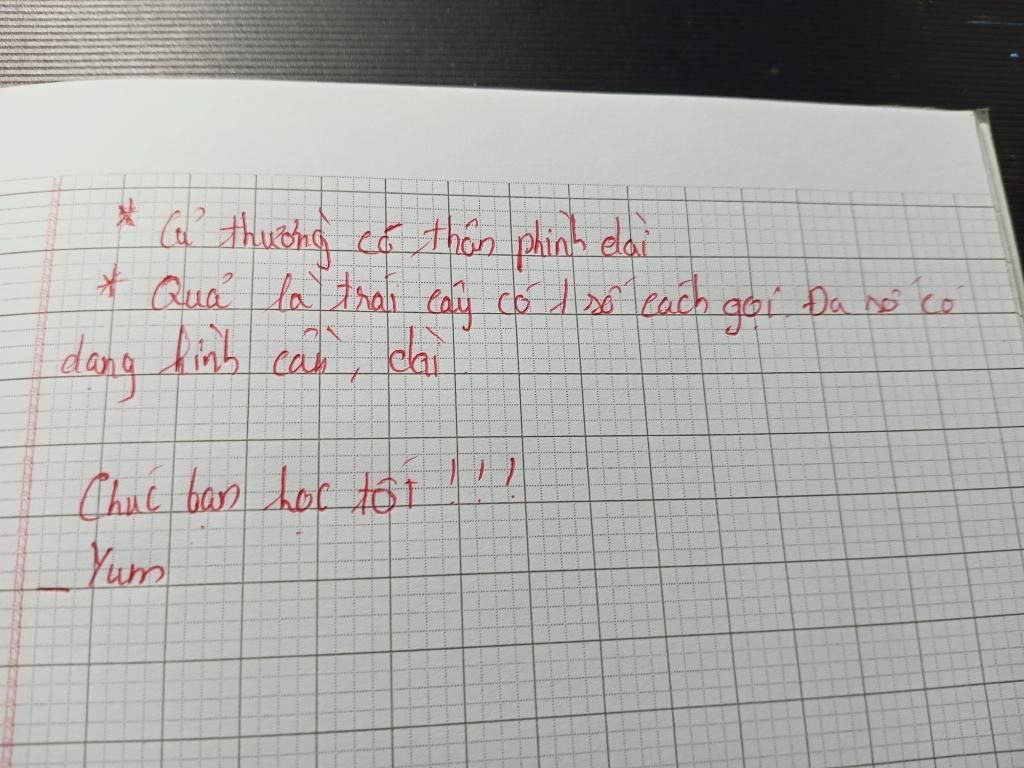 * Củ thường có thân phình dài
* Quả là trái cây có 1 số cách gọi. Đa số có
dạng hình cần, dài.
Chúc bạn học tốt!!!
_ Yum